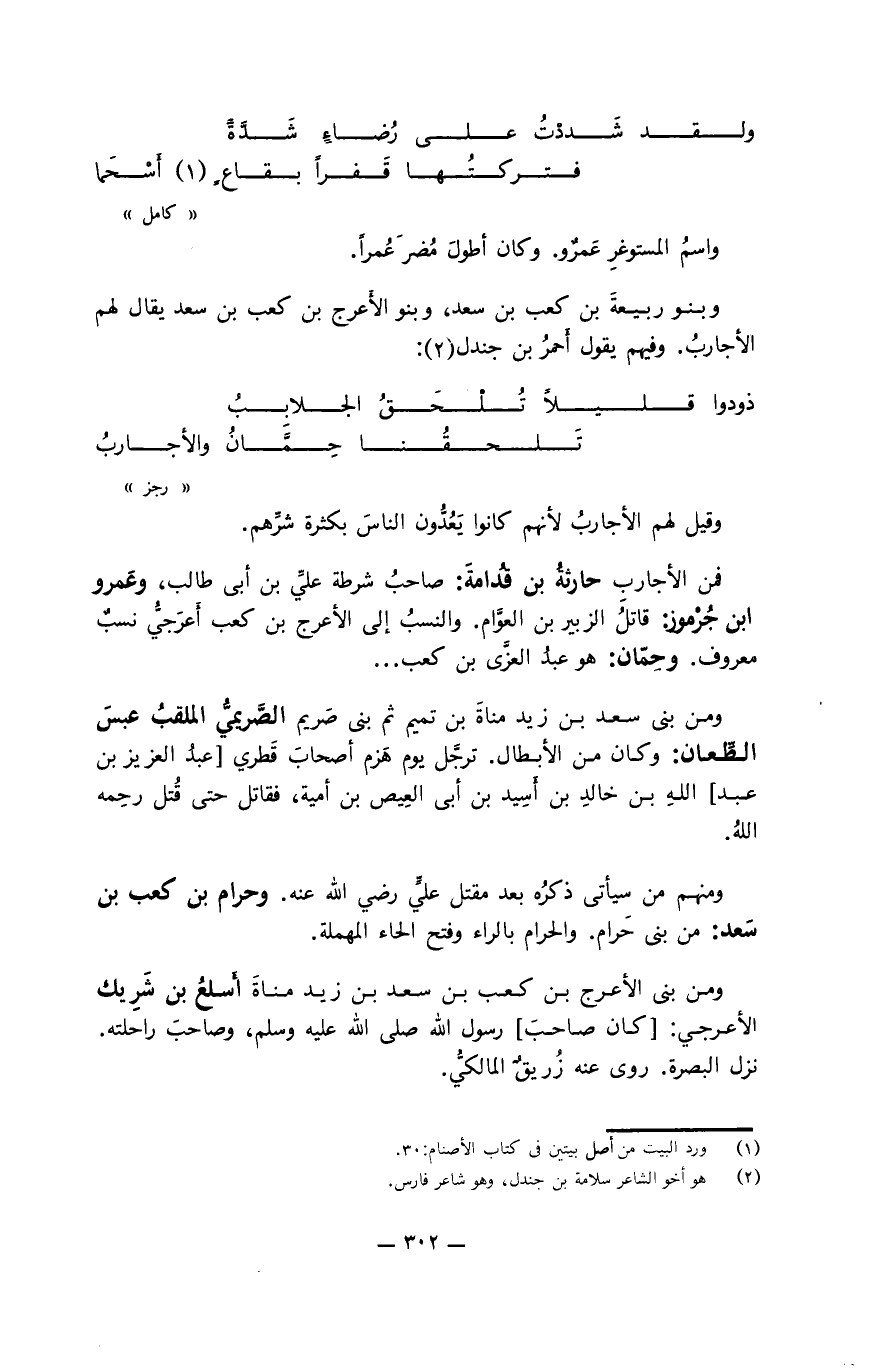 ولقد شَددْتُ على رُضاءٍ شَدَّةً
فتركتُها قَفراً بقاعٍ (١) أَسْحَما
« كامل »
واسمُ المستوغرِ عَمرٌو. وكان أطولَ مُضرَ عُمراً.
وبنو ربيعةَ بن كعب بن سعد، وبنو الأَعرج بن كعب بن سعد يقال لهم
الأجاربُ. وفيهم يقول أَحمرُ بن جندل(٢):
ذودوا قليلاً تُلْحَقُ الجلاببُ
تَلحقُنا حِمَّانُ والأجاربُ
« رجز »
وقيل لهم الأجاربُ لأنهم كانوا يَعُدُّون الناسَ بكثرة شرِّهم.
فمن الأجارب حارثةُ بن قُدامةَ: صاحبُ شرطة عليِّ بن أبى طالب، وعَمرو
ابن جُرْموز: قاتلُ الزبير بن العوَّام. والنسبُ إلى الأعرج بن كعب أَعرَجيُّ نسبٌ
معروف. وحِمّان: هو عبدُ العزَّى بن كعب...
ومن بنى سعد بن زيد مناةَ بن تميم ثم بنى صَريم الصَّريميُّ الملقبُ عبسَ
الطِّعان: وكان من الأبطال. ترجَّل يوم هَزم أصحابَ قَطري [عبدُ العزيز بن
عبد] اللهِ بن خالدِ بن أَسِيد بن أبى العِيص بن أمية، فقاتل حتى قُتل رحمه
اللهُ.
ومنهم من سيأتى ذكرُه بعد مقتل عليٍّ رضي الله عنه. وحرام بن كعب بن
سَعد: من بنى حَرام. والحرام بالراء وفتح الحاء المهملة.
ومن بنى الأعرج بن كعب بن سعد بن زيد مناةَ أَسلعُ بن شَرِيك
الأعرجي: [كان صاحبَ] رسول الله صلى الله عليه وسلم، وصاحبَ راحلته.
نزل البصرة. روى عنه زُريقٌ المالكيُّ.
(١) ورد البيت من أصل بيتين فى كتاب الأصنام:٣٠.
(٢) هو أخو الشاعر سلامة بن جندل، وهو شاعر فارس.
— ٣٠٢ —